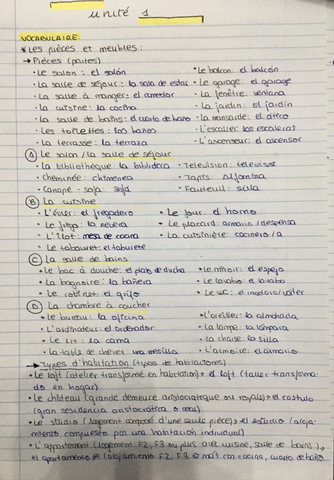 unité 1
VOCABULAIRE
• Les pièces et meubles:
→ Pièces (partes)
• Le salon: el salón
• Le balcon: el balcón
• La salle de séjour: la sala de estar
• Le garage: el garage
• La salle à manger: el comedor
• La fenêtre: ventana
• La cuisine: la cocina
• La jardin: el jardín
• La salle de bains: el cuarto de baño
• La mansarde: el ático
• Les toilettes: los baños
• L'escalier: las escaleras
• La terrasse: la terraza
• L'ascenseur: el ascensor
A Le salon / la salle de séjour
• La bibliothèque: la biblioteca
• Télévision: televisor
• Cheminée: chimenea
• Tapis: alfombra
• Canapé - sofa: sofá
• Fauteuil: silla
B La cuisine
• L'évier: el fregadero
• Le four: el horno
• Le frigo: la nevera
• Le placard: armario / despensa
• L'îlot: mesa de cocina
• La cuisinière: cocinero/a
• Le tabouret: el taburete
C La salle de bains
• Le bac à douche: el plato de ducha
• Le miroir: el espejo
• La baignoire: la bañera
• Le lavabo: el lavabo
• Le robinet: el grifo
• Le wc: el inodoro/váter
D La chambre à coucher
• Le bureau: la oficina
• L'oreiller: la almohada
• L'ordinateur: el ordenador
• La lampe: la lámpara
• Le lit: la cama
• La chaise: la silla
• La table de chevet: una mesilla
• L'armoire: el armario
→ Types d'habitation (tipos de habitaciones)
• Le loft (atelier transformé en habitation) → el loft (taller transforma-
do en hogar)
• Le château (grande demeure aristocratique ou royale) → el castillo
(gran residencia aristocrática o real)
• Le studio (logement composé d'une seule pièce) → el estudio (aloja-
miento compuesto por una habitación individual)
• L'appartement (logement F2, F3 ou plus avec cuisine, salle de bains) →
el apartamento (alojamiento F2, F3 o más con cocina, cuarto de baño